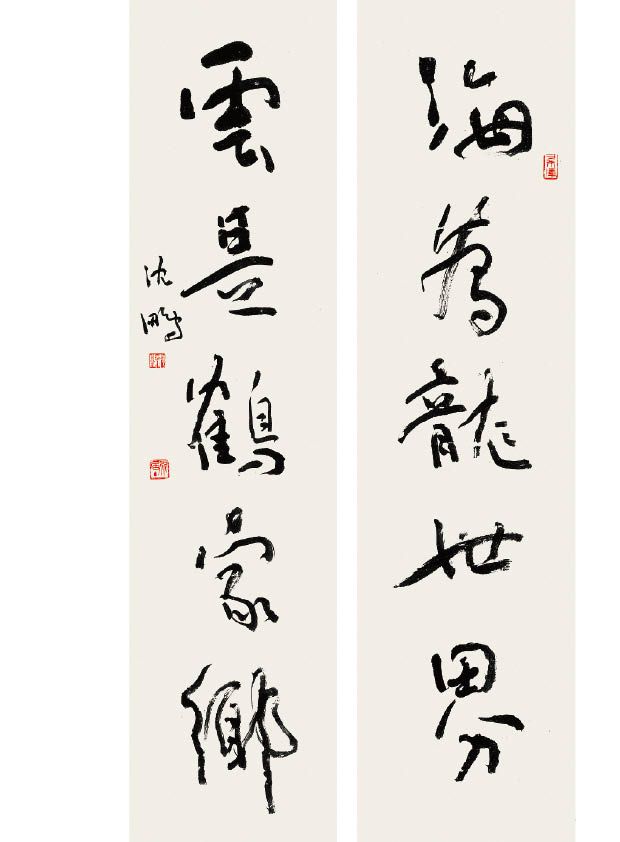 海爲龍世界
雲是鶴家鄉
沈鵬